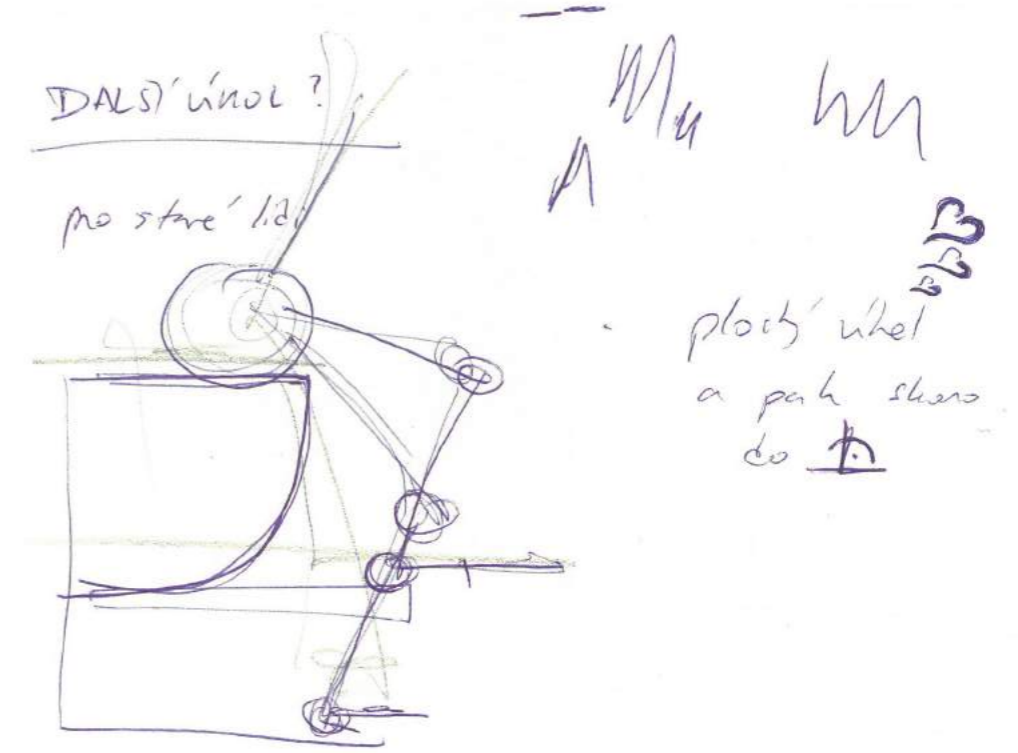 DALŠÍ ÚKOL?
pro staré lidi
plochý úhel
a pak skoro
do